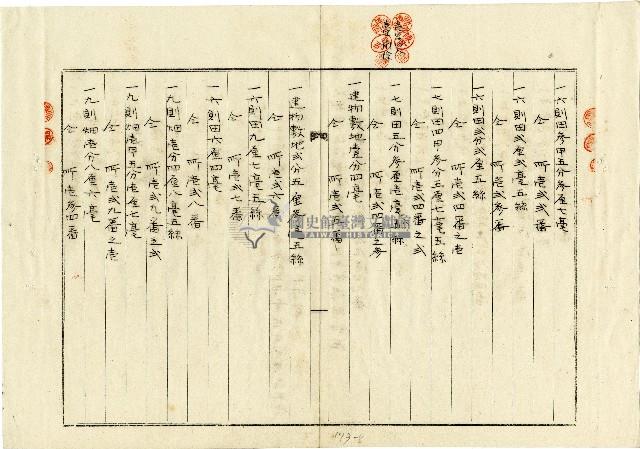 一六則田參甲五分參厘七毫
仝 所壱弐番
一六則田弐厘弐毫五絲
仝 所壱弐參番
一六則田弐分弐厘五絲
仝 所壱弐四番之壱
一七則田四甲八分五厘七毫五絲
仝 所壱弐四番之弐
一七則田五分參厘壱毫五絲
仝 所壱弐四番之參
一建物敷地壱分四毫
仝 所壱弐五番
一建物敷地弐分五厘參毫五絲
仝 所壱弐六番
一六則田九厘七毫五絲
仝 所壱弐七番
一六則田六厘四毫
仝 所壱弐八番
一九則畑壱分四厘八毫五絲
仝 所壱弐九番之弐
一九則畑壱甲五分壱厘七毫
仝 所壱弐九番之壱
一九則畑壱分八厘六毫
仝 所壱參四番
國史館臺灣文獻館
TAIWAN HISTORICA